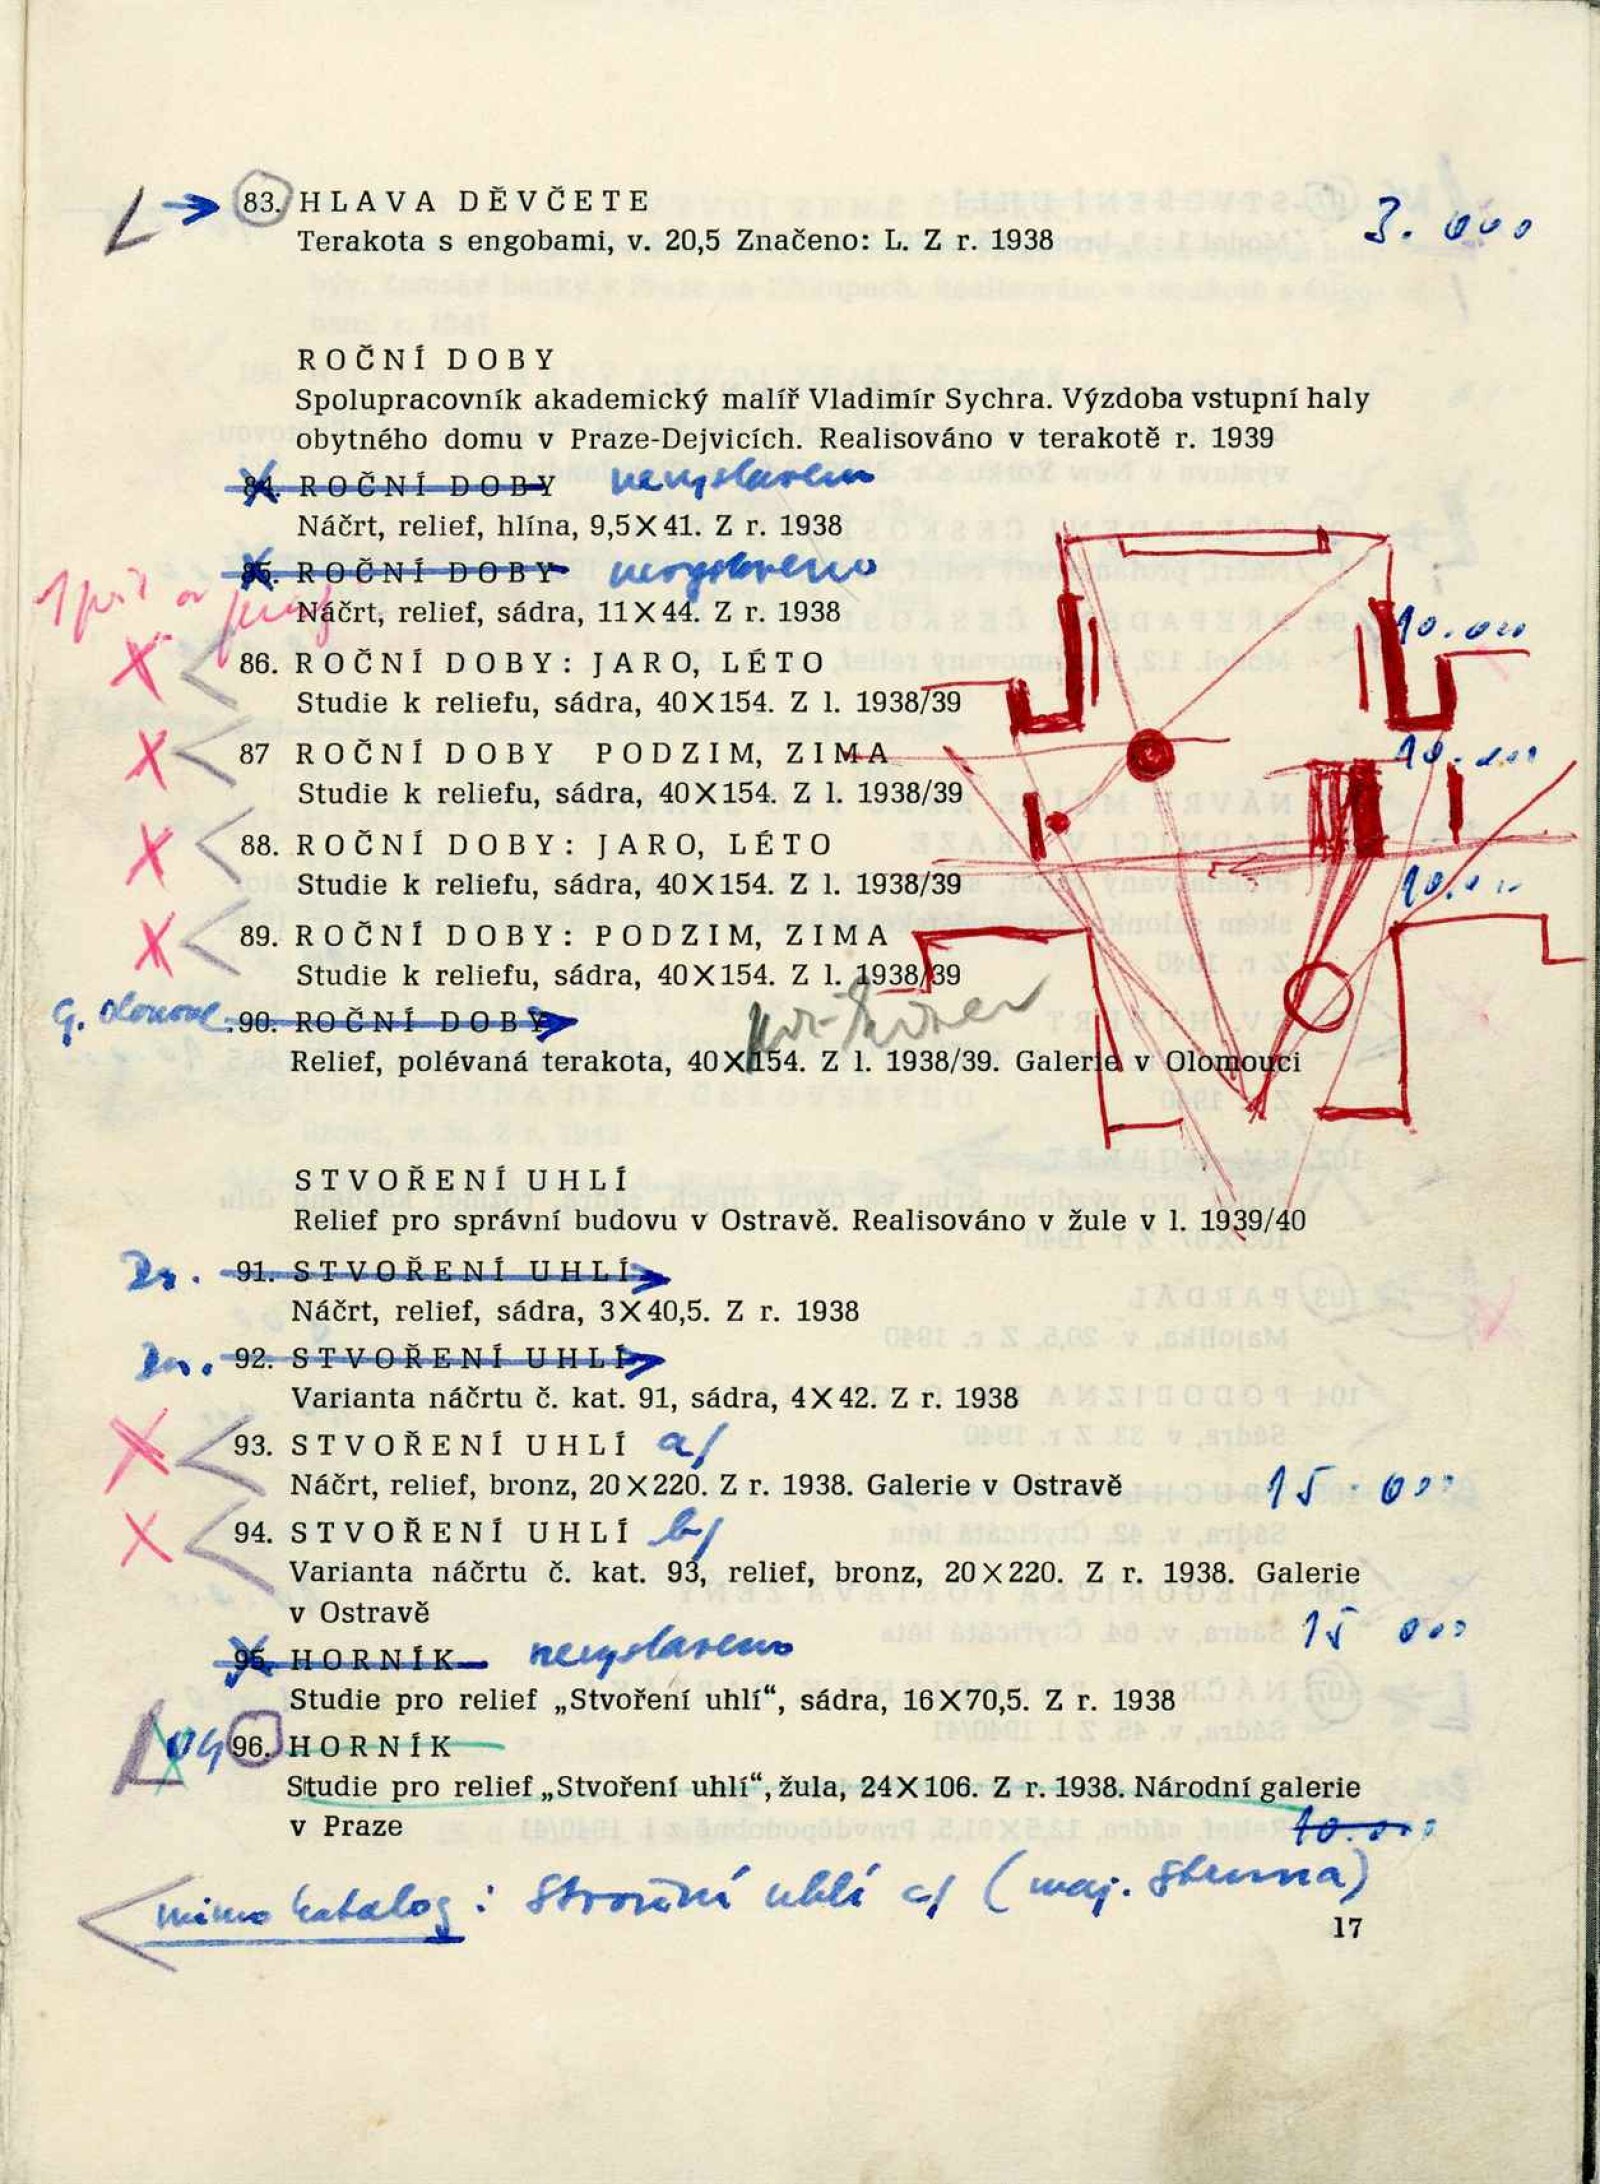 83. HLAVA DĚVČETE
3.000
Terakota s engobami, v. 20,5 Značeno: L. Z r. 1938
ROČNÍ DOBY
Spolupracovník akademický malíř Vladimír Sychra. Výzdoba vstupní haly
obytného domu v Praze-Dejvicích. Realisováno v terakotě r. 1939
84. ROČNÍ DOBY nevystaveno
Náčrt, relief, hlína, 9,5×41. Z r. 1938
85. ROČNÍ DOBY nevystaveno
Náčrt, relief, sádra, 11×44. Z r. 1938
10.000
86. ROČNÍ DOBY: JARO, LÉTO
Studie k reliefu, sádra, 40×154. Z l. 1938/39
87 ROČNÍ DOBY PODZIM, ZIMA
10.000
Studie k reliefu, sádra, 40×154. Z l. 1938/39
88. ROČNÍ DOBY: JARO, LÉTO
Studie k reliefu, sádra, 40×154. Z l. 1938/39
10.000
89. ROČNÍ DOBY: PODZIM, ZIMA
Studie k reliefu, sádra, 40×154. Z l. 1938/39
G. Olomouc 90. ROČNÍ DOBY
Relief, polévaná terakota, 40×154. Z l. 1938/39. Galerie v Olomouci
STVOŘENÍ UHLÍ
Relief pro správní budovu v Ostravě. Realisováno v žule v l. 1939/40
91. STVOŘENÍ UHLÍ
Náčrt, relief, sádra, 3×40,5. Z r. 1938
92. STVOŘENÍ UHLÍ
Varianta náčrtu č. kat. 91, sádra, 4×42. Z r. 1938
93. STVOŘENÍ UHLÍ a/
Náčrt, relief, bronz, 20×220. Z r. 1938. Galerie v Ostravě 15.000
94. STVOŘENÍ UHLÍ b/
Varianta náčrtu č. kat. 93, relief, bronz, 20×220. Z r. 1938. Galerie
v Ostravě
15 000
95. HORNÍK nevystaveno
Studie pro relief „Stvoření uhlí“, sádra, 16×70,5. Z r. 1938
NG 96. HORNÍK
Studie pro relief „Stvoření uhlí“, žula, 24×106. Z r. 1938. Národní galerie
v Praze
10.000
mimo katalog: Stvoření uhlí c/ (maj. Struna)
17